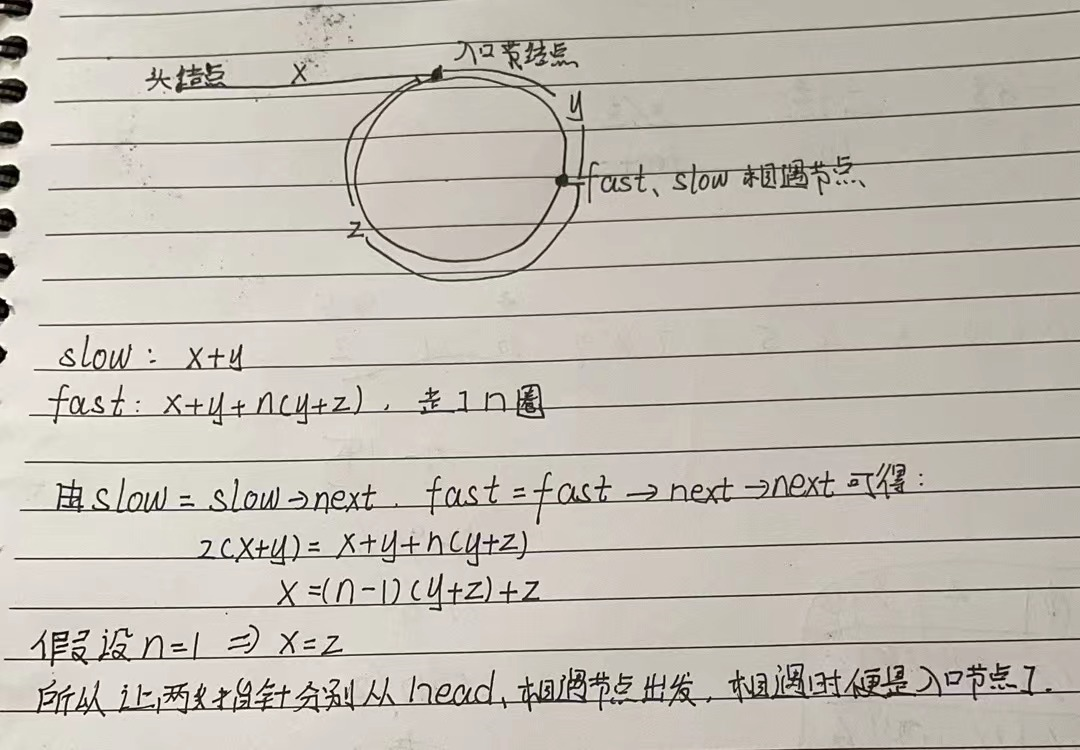 入口节结点
头结点 x
y
fast、slow 相遇节点
z
slow: x+y
fast: x+y+n(y+z), 走了n圈
由slow=slow→next. fast=fast→next→next可得:
2(x+y)=x+y+n(y+z)
x=(n-1)(y+z)+z
假设n=1 ⇒ x=z
所以让两指针分别从head、相遇节点出发,相遇时便是入口节点了.